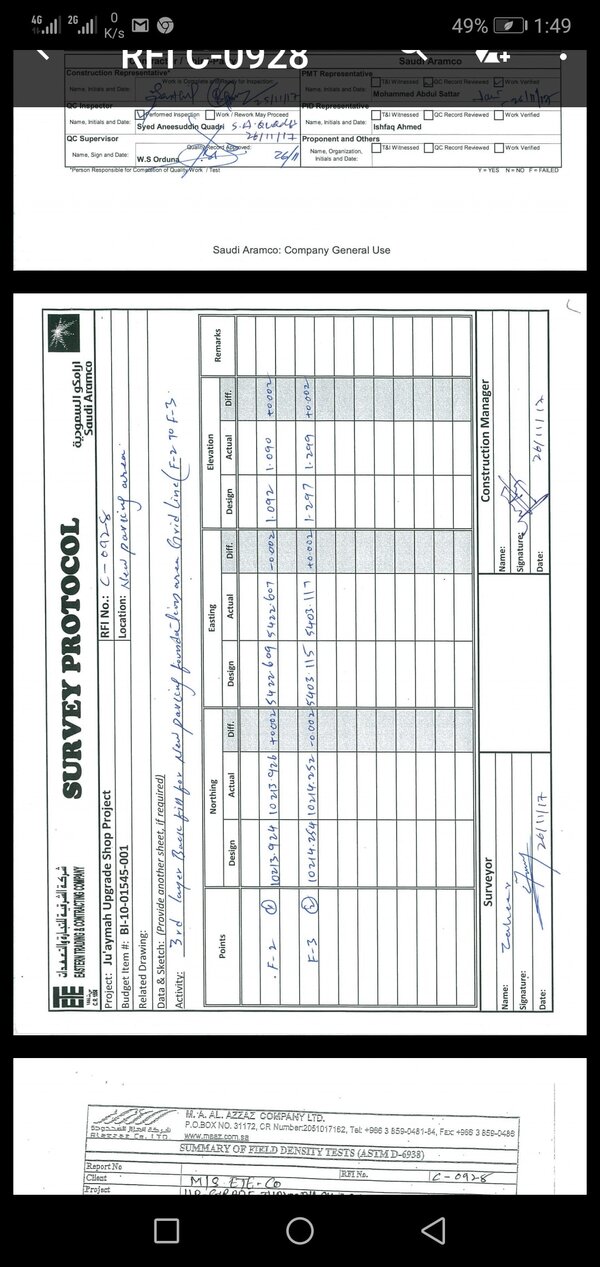 4G 2G 0 K/s 49% 1:49
RFI C-0928
Saudi Aramco
Construction Representative*
Work is Complete and Ready for Inspection:
Name, Initials and Date:
25/11/17
PMT Representative
T&I Witnessed QC Record Reviewed Work Verified
Name, Initials and Date:
Mohammed Abdul Sattar
QC Inspector
Performed Inspection Work / Rework May Proceed
Name, Initials and Date:
Syed Aneesuddin Quadri S.A. Quadri
26/11/17
PID Representative
T&I Witnessed QC Record Reviewed Work Verified
Name, Initials and Date:
Ishfaq Ahmed
QC Supervisor
Quality Record Approved:
Name, Sign and Date:
W.S Orduna
26/11
Proponent and Others
T&I Witnessed QC Record Reviewed Work Verified
Name, Organization,
Initials and Date:
*Person Responsible for Completion of Quality Work / Test
Y = YES N = NO F = FAILED
Saudi Aramco: Company General Use
ETE
شركة الشرقية للتجارة والتعهدات
EASTERN TRADING & CONTRACTING COMPANY
SURVEY PROTOCOL
أرامكو السعودية
Saudi Aramco
Project: Ju'aymah Upgrade Shop Project
RFI No.: C-0928
Budget Item #: BI-10-01545-001
Location: New parking area
Related Drawing:
Data & Sketch: (Provide another sheet, if required)
Activity: 3rd layer Back fill for New parking foundation area Grid line (F-2 TO F-3.
Points Northing Easting Elevation Remarks
Design Actual Diff. Design Actual Diff. Design Actual Diff.
F-2 10213.924 10213.926 +0.002 5422.609 5422.607 -0.002 1.092 1.090 +0.002
F-3 10214.254 10214.252 -0.002 5403.115 5403.117 +0.002 1.297 1.299 +0.002
Surveyor
Construction Manager
Name: Zaheer
Name:
Signature:
Signature:
Date: 26/11/17
Date: 26/11/17
M. A. AL. AZZAZ COMPANY LTD.
P.O.BOX NO. 31172, CR Number:2051017162, Tel: +966 3 859-0481-84, Fax: +966 3 859-0486
www.maaz.com.sa
SUMMARY OF FIELD DENSITY TESTS (ASTM D-6938)
Report No
RFI No. C-0928
Client M/S ETE-CO
Project